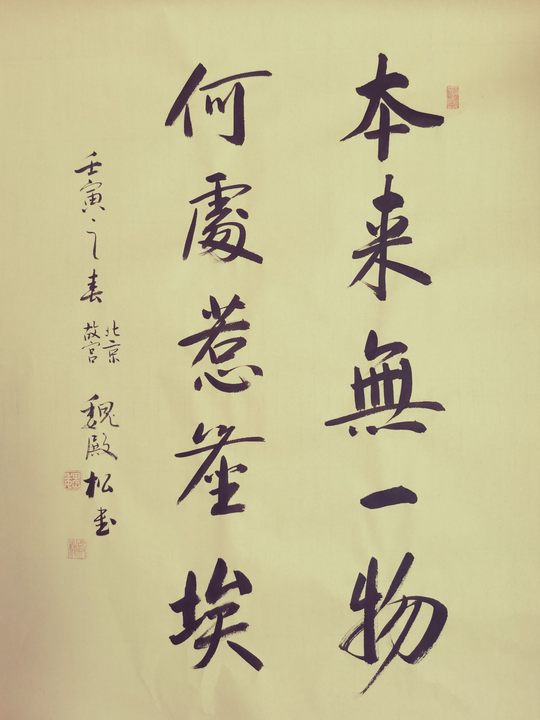 本来無一物
何處惹塵埃
壬寅之春 北京故宫 魏殿松書